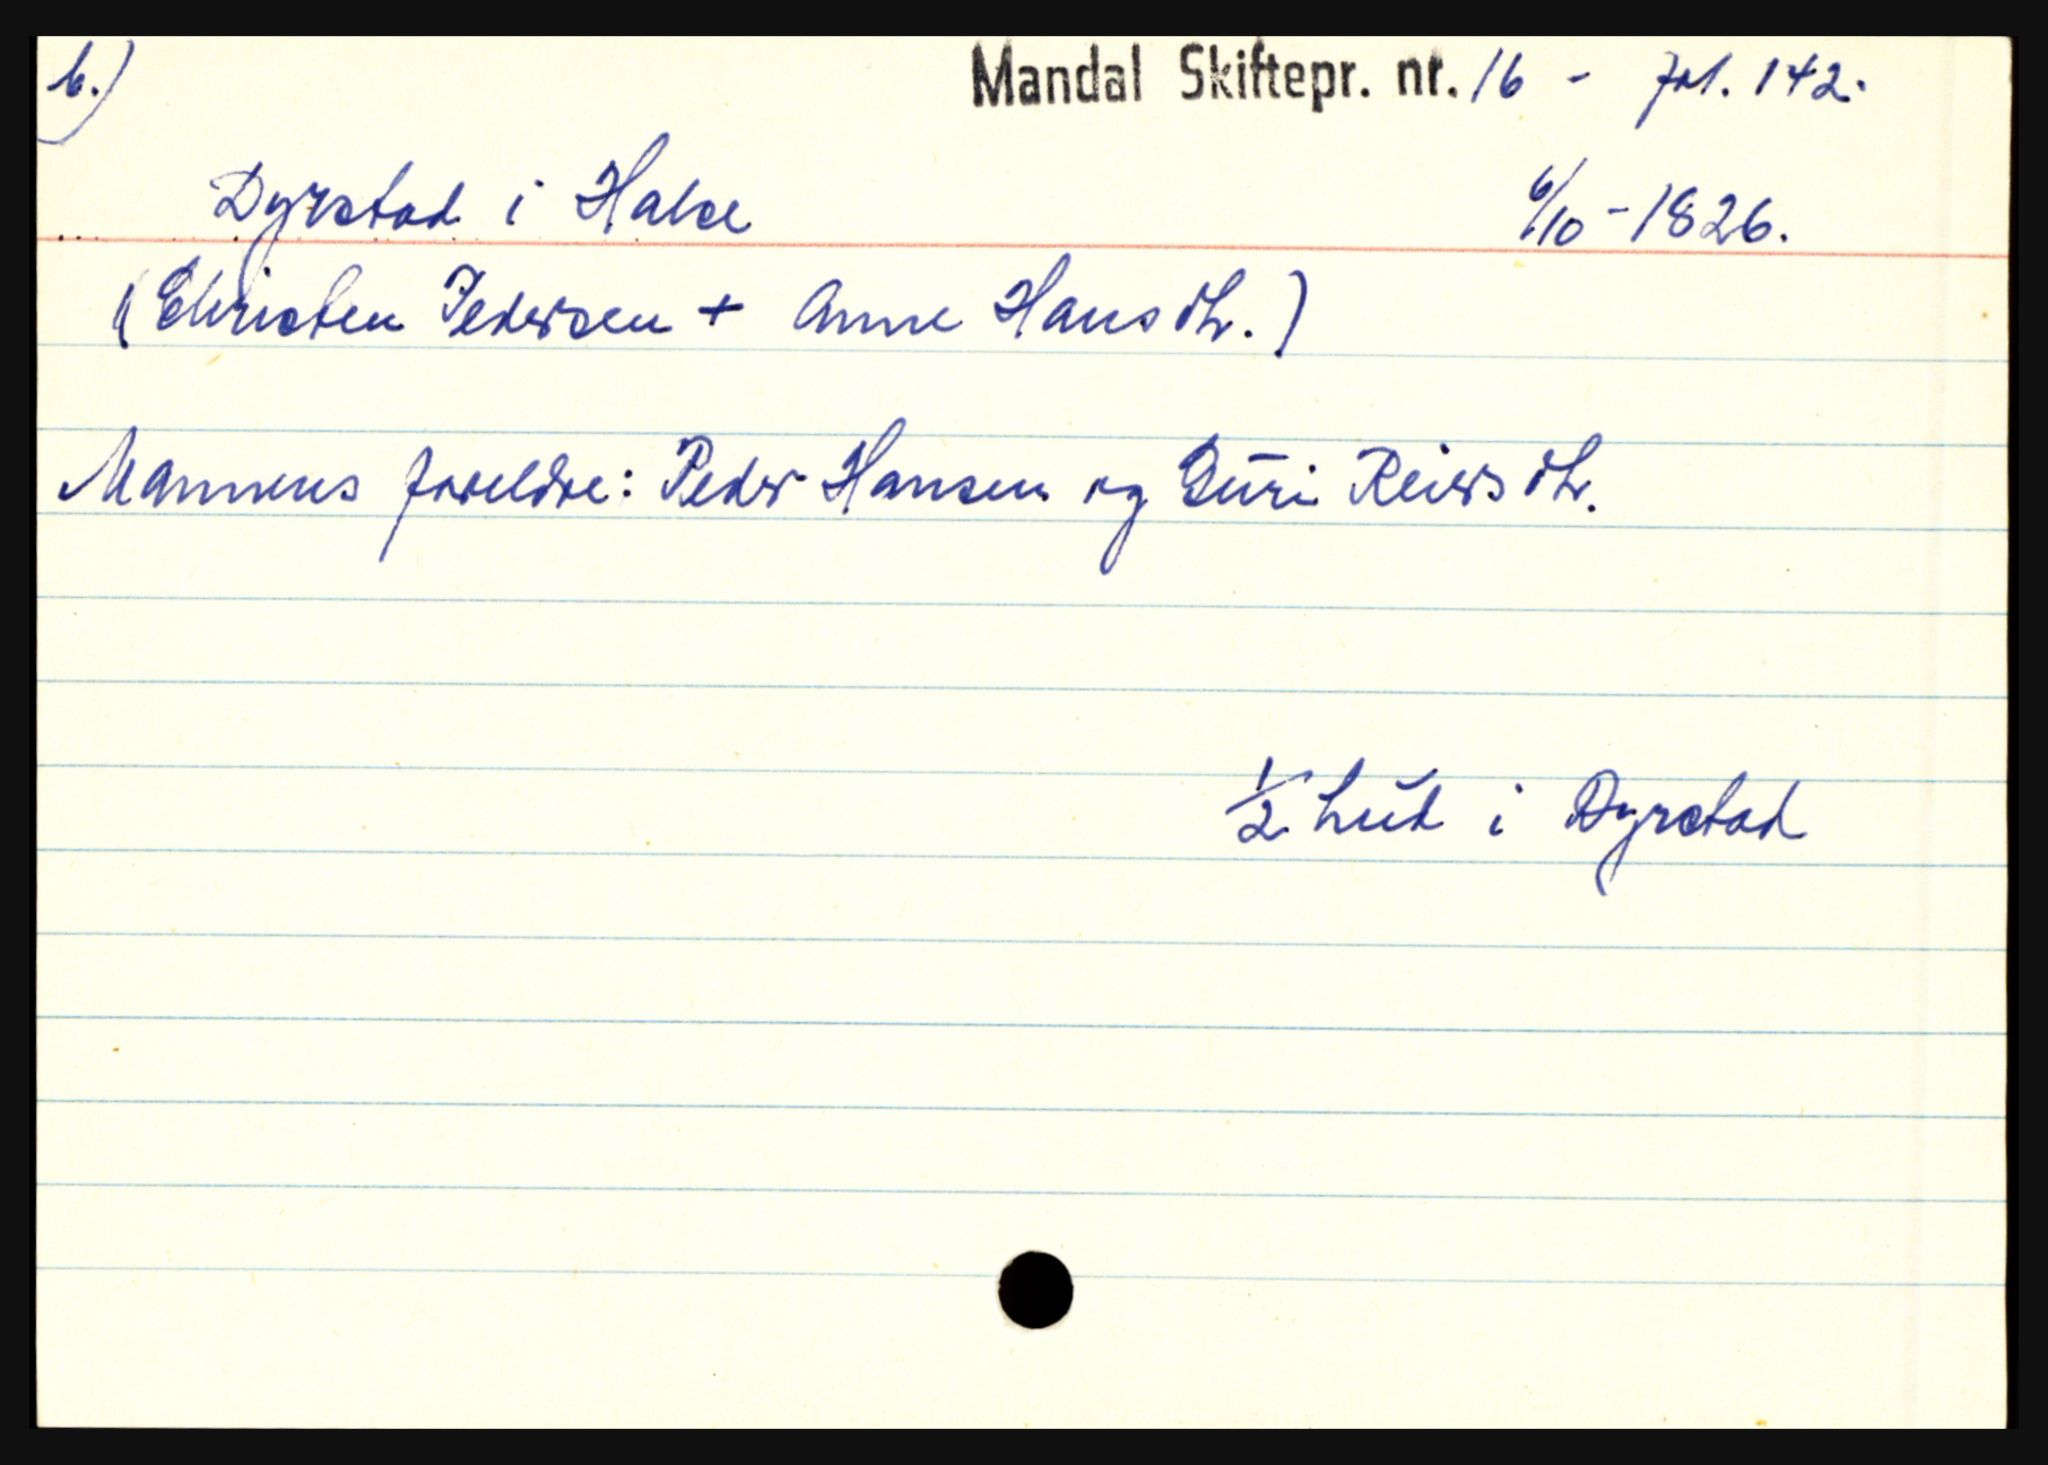 b.) Mandal Skiftepr. nr. 16 - fol. 142.
Dyrstad i Halse 6/10 - 1826.
(Christen Pedersen + Anne Hansdtr.)
Mannens foreldre: Peder Hansen og Guri Reiersdtr.
1/2 hud i Dyrstad